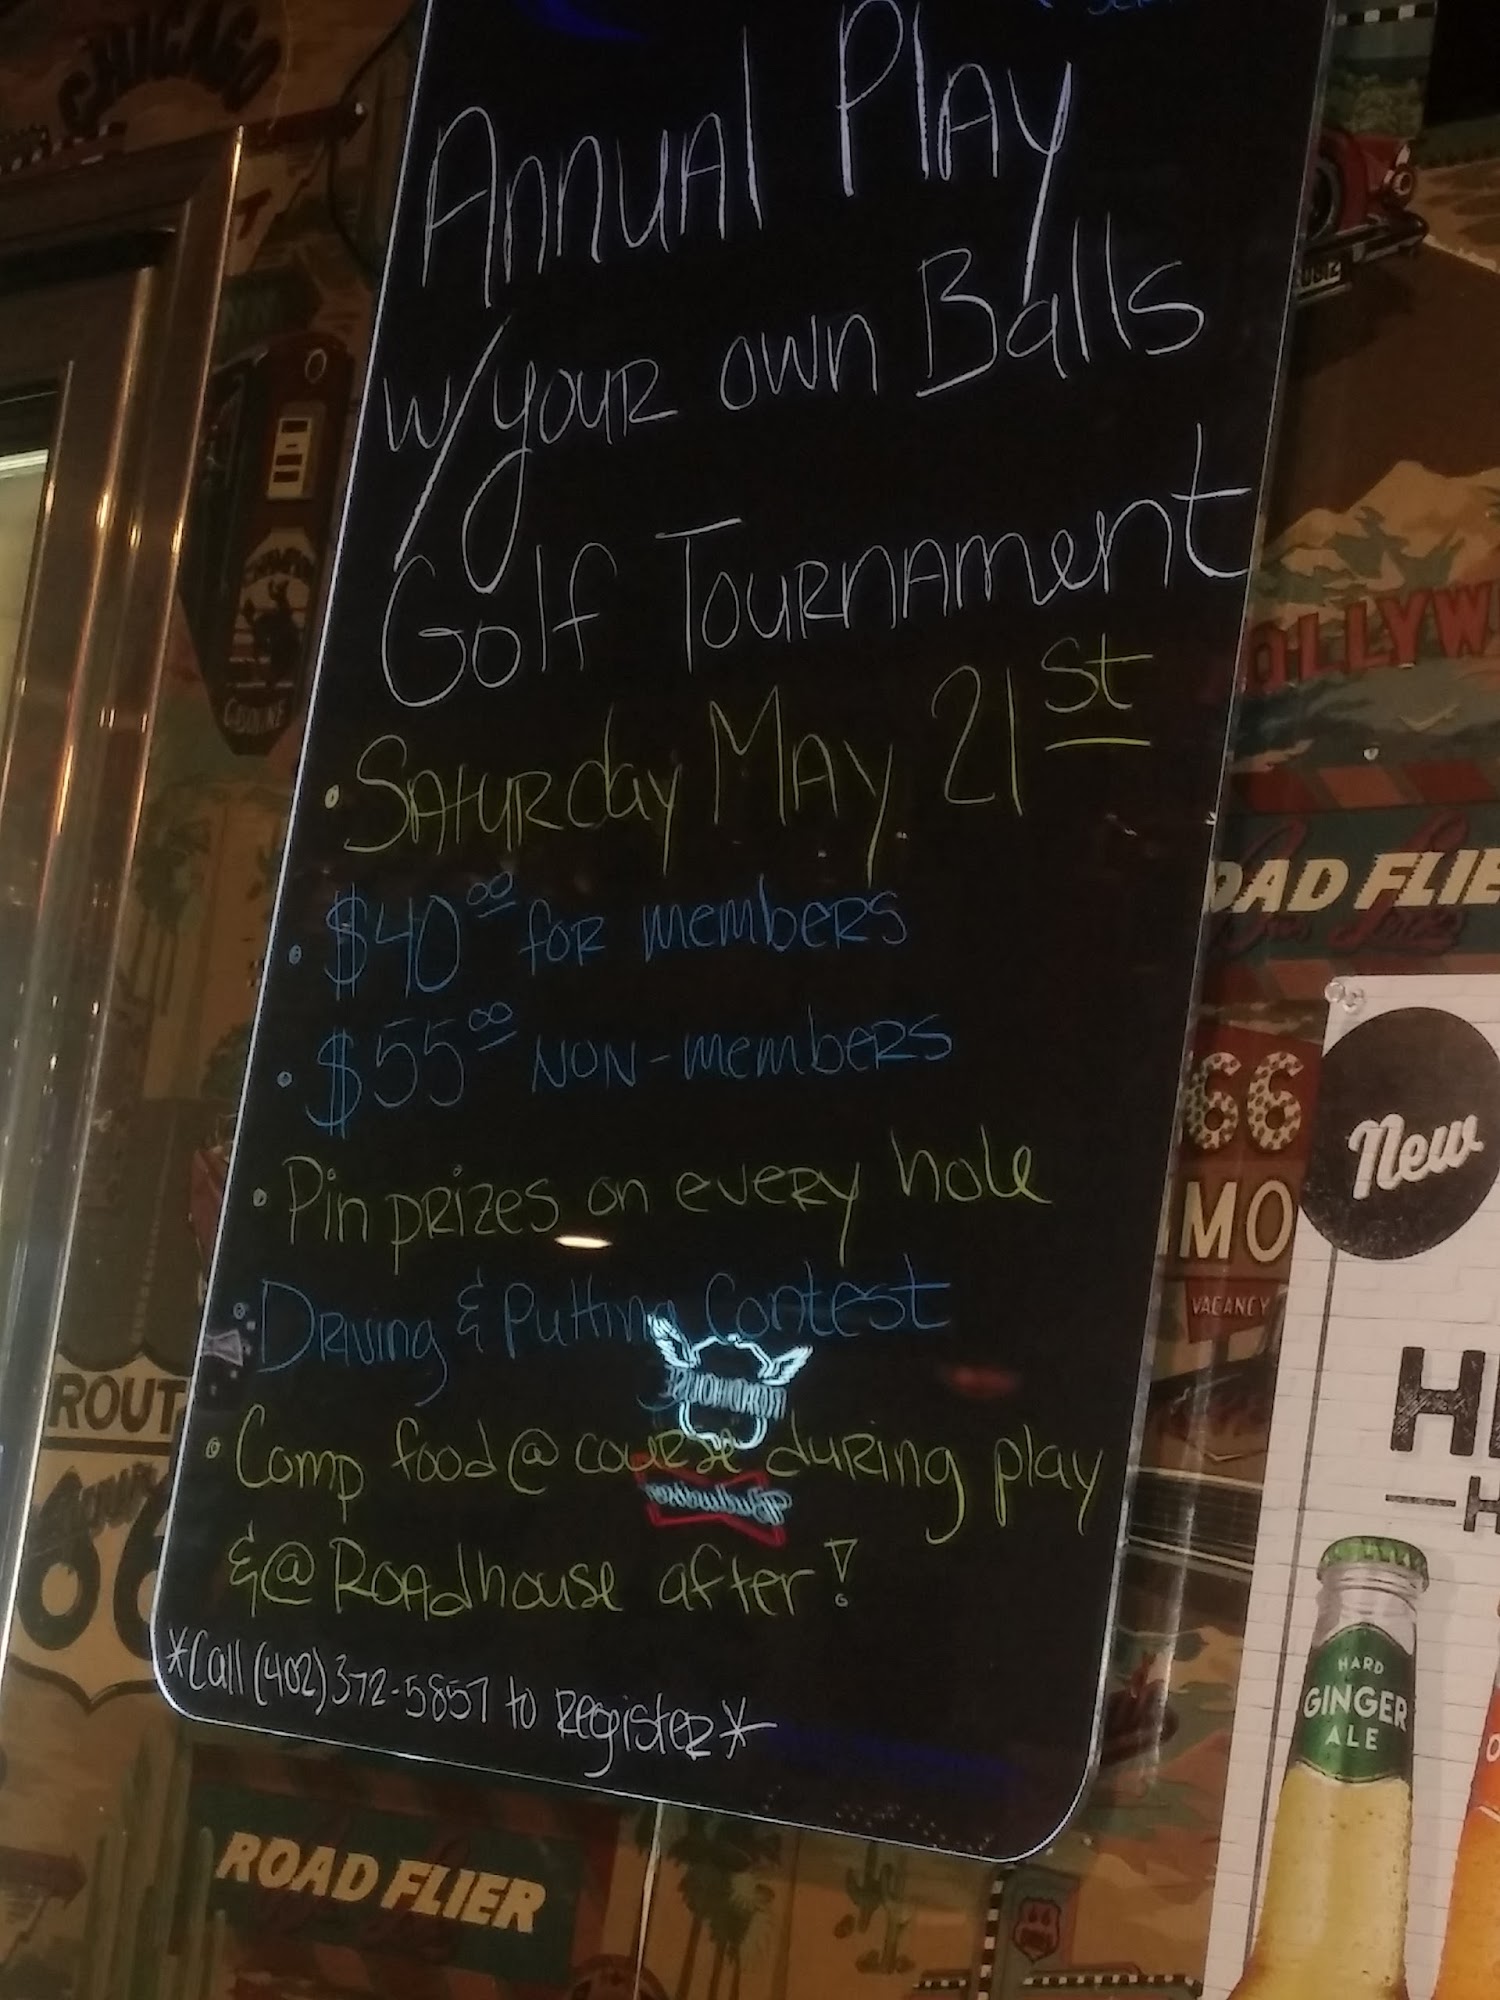 CHICAGO
Annual Play
w/your own Balls
Golf Tournament
• Saturday May 21st
• $40.00 for members
• $55.00 Non-members
• Pin prizes on every hole
• Driving & Putting Contest
• Comp food @ course during play
& @ Roadhouse after!
*Call (402) 372-5857 to Register*
GASOLINE
ROUT
66
ROAD FLIER
OLLYW
OAD FLIE
66
MO
VACANCY
New
H
H
HARD
GINGER
ALE
ROADHOUSE
Budweiser